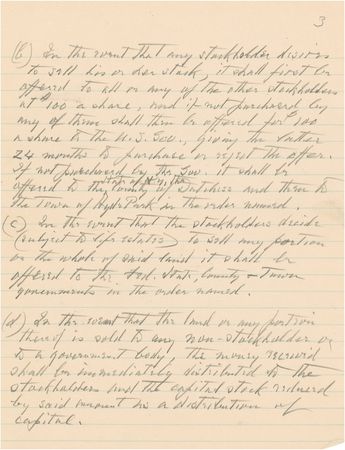 3
(b) In the event that any stockholder desires
to sell his or her stock, it shall first be
offered to all or any of the other stockholders
at $100 a share, and if not purchased by
any of them shall then be offered for $100
a share to the U.S. Gov., giving the latter
24 months to purchase or reject the offer.
If not purchased by the Gov. it shall be
State of N.Y., the
offered to the County of Dutchess and then to
the Town of Hyde Park in the order named.
(c) In the event that the stockholders decide
(subject to life estates) to sell any portion
or the whole of said land it shall be
offered to the Fed. State, County & Town
governments in the order named.
(d) In the event that the land or any portion
thereof is sold to any non-stockholder or
to a government body, the money received
shall be immediately distributed to the
stockholders and the capital stock reduced
by said amount as a distribution of
capital.